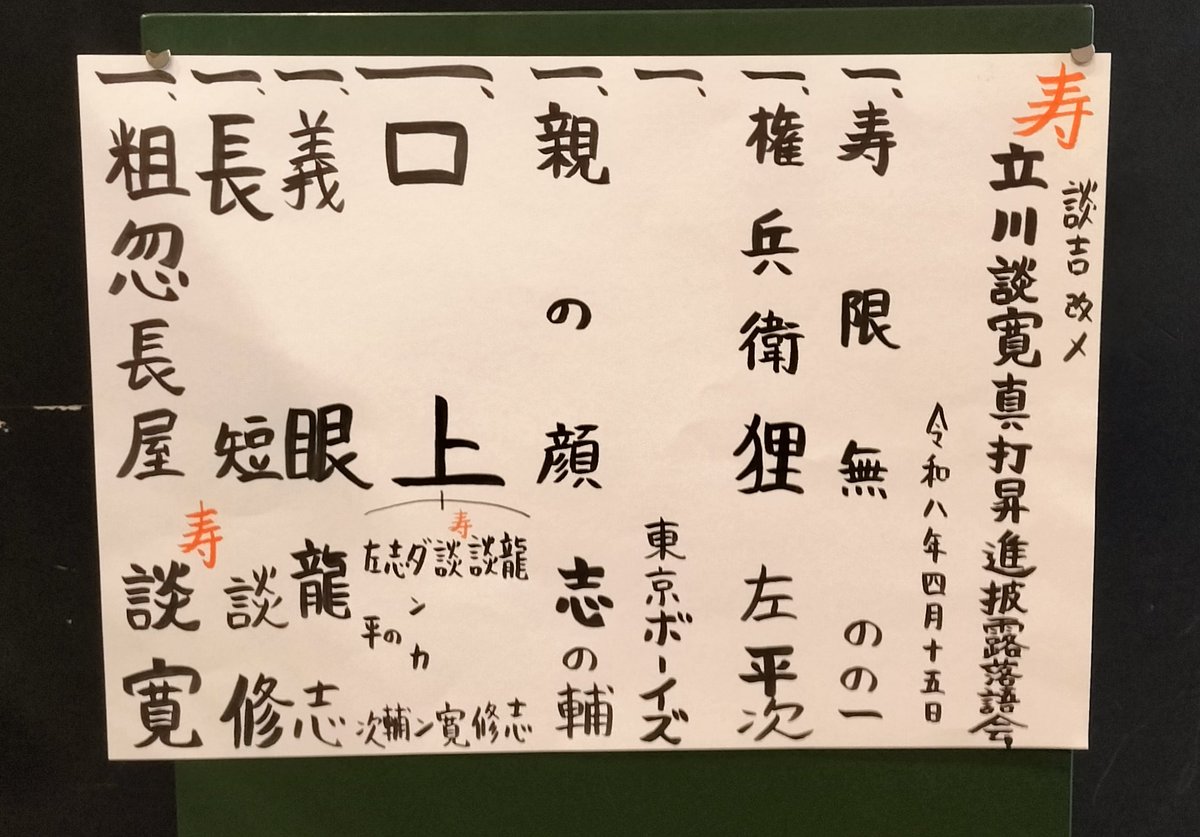 寿
談吉改メ
立川談寛真打昇進披露落語会
令和八年四月十五日
一、寿限無 のの一
一、権兵衛狸 左平次
一、東京ボーイズ
一、親の顔 志の輔
一、口上
龍志
談修
寿 談寛
ダンカン
志の輔
左平次
一、義眼 龍志
一、長短 談修
一、粗忽長屋 寿 談寛